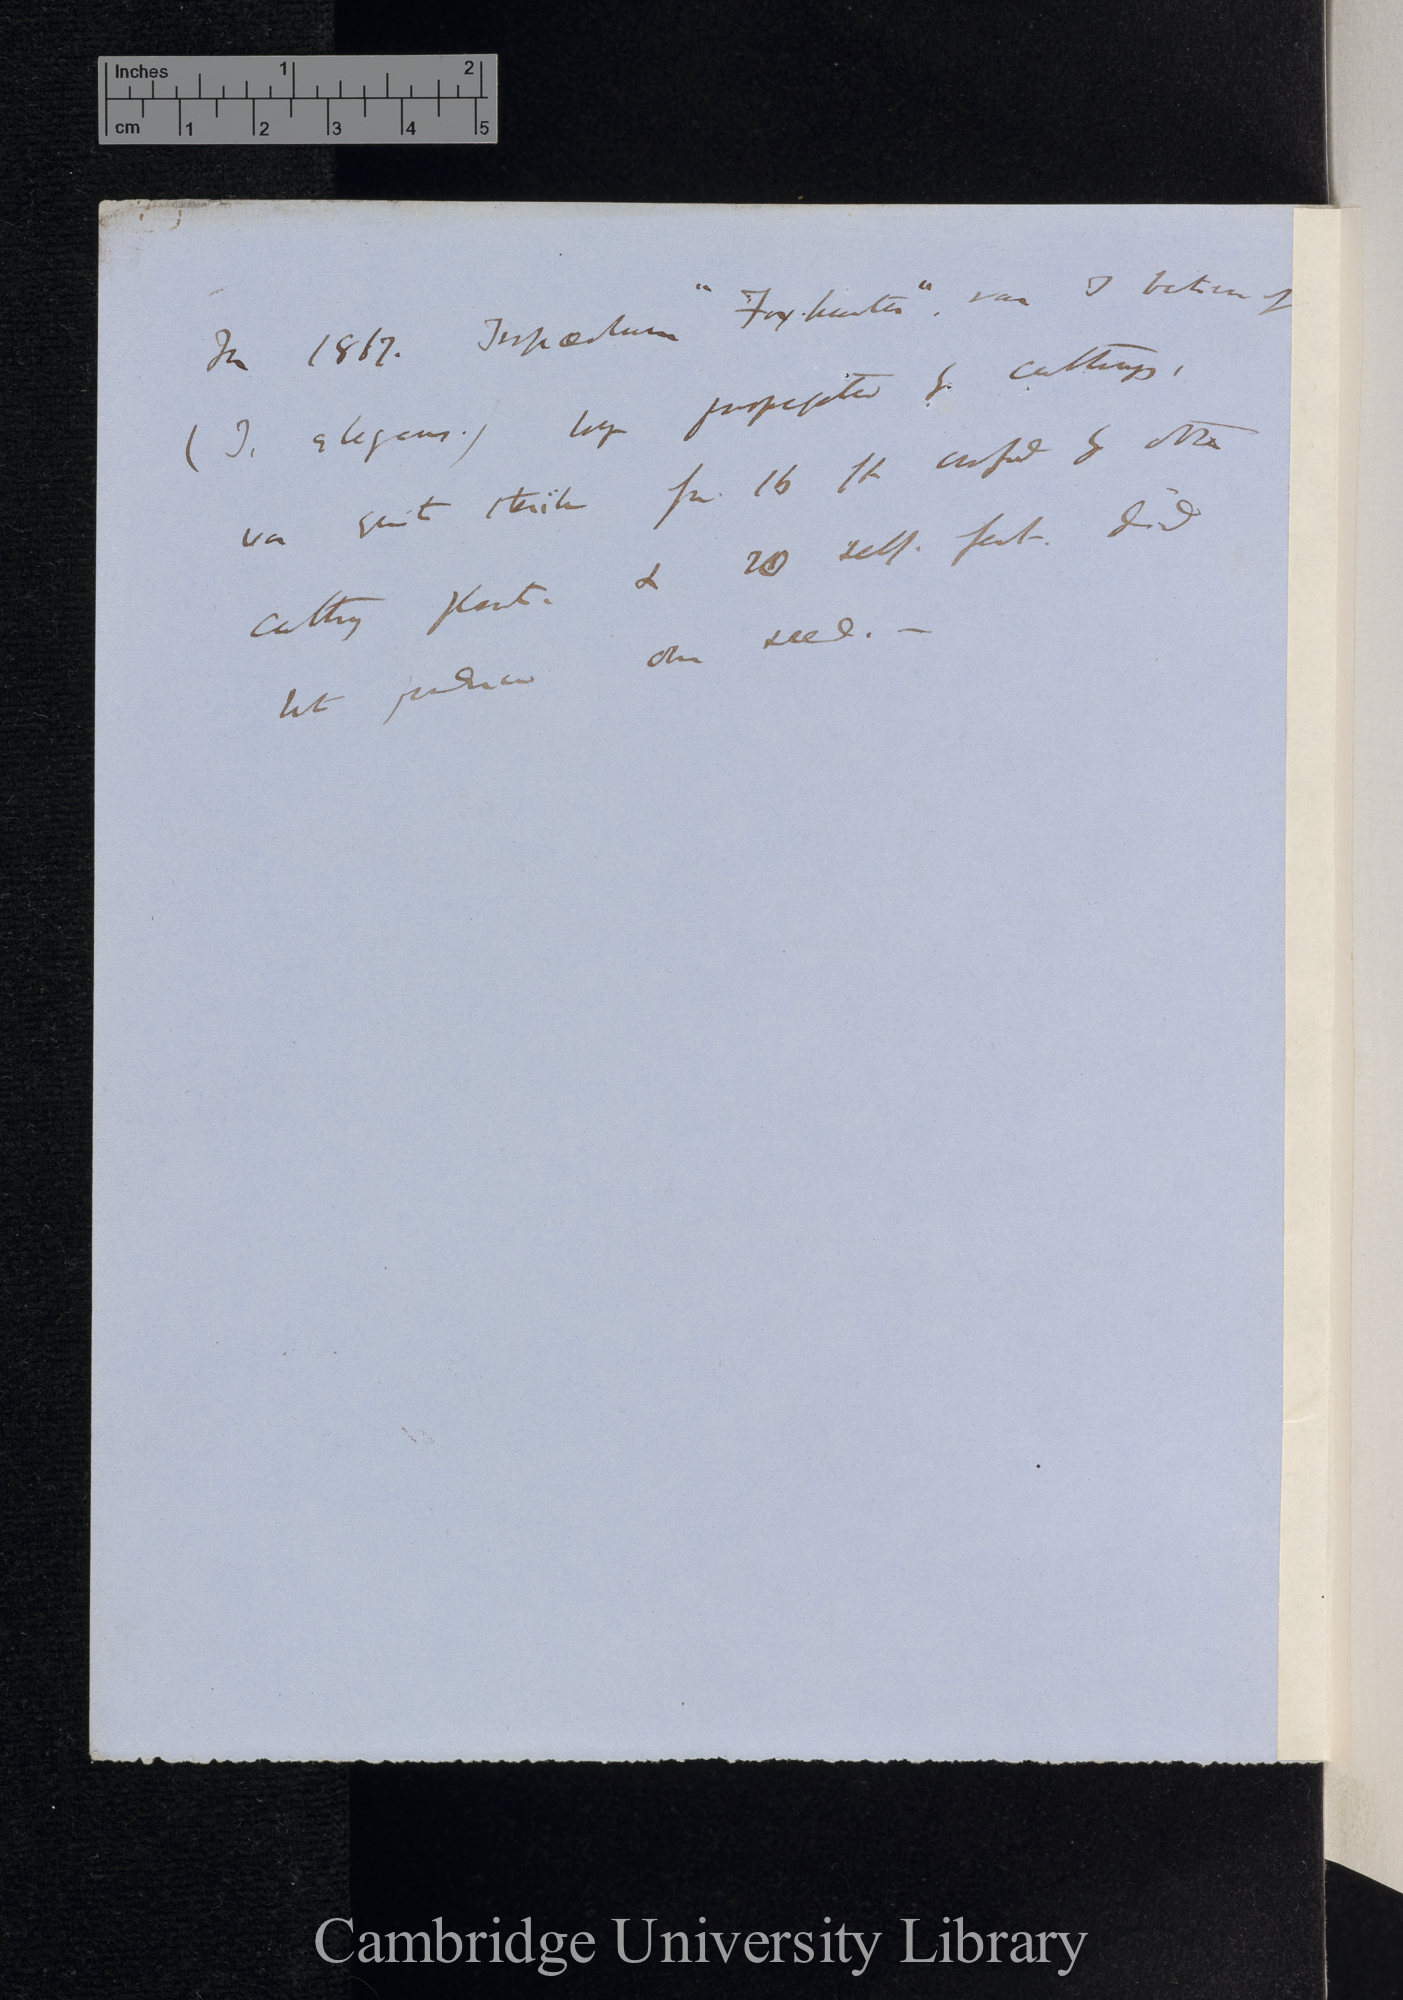 Inches 1 2
cm 1 2 3 4 5
In 1867. Tropæolum "Fox-hunter", var I believe of
(T. elegans.) long propagated by cuttings,
was quite sterile for 16 fl crossed by other
cutting plants & 20 self. fert. did
not produce one seed. —
Cambridge University Library